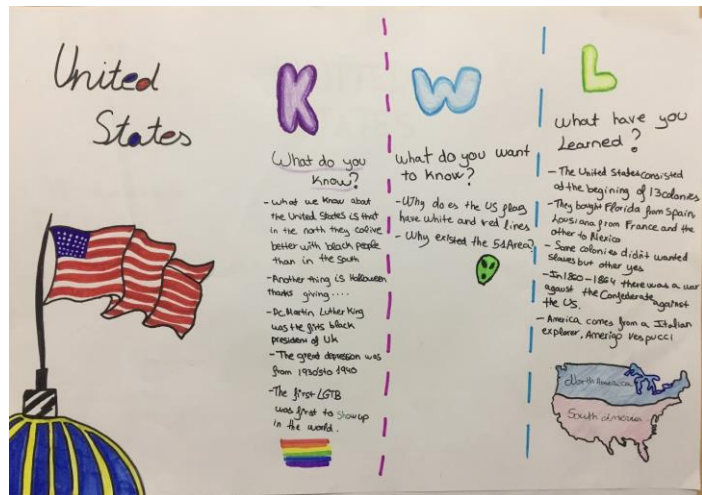 United
States
K
What do you
know?
- What we know about
the United States is that
in the north they
better with black people
than in the South
- Another thing is Halloween
thanks giving....
- Dr. Martin Luther King
was the firts black
president of UK
- The great depression was
from 1930's to 1940
- The first LGTB
was first to show up
in the world.
W
What do you want
to know?
- Why does the US flag
have white and red lines
- Why existed the 51 Area?
L
What have you
Learned?
- The United States consisted
at the begining of 13 colonies
- They bought Florida from Spain,
Louisiana from France and the
other to Mexico
- Some colonies didn't wanted
slaves but other yes
- In 1860-1864 there was a war
against the Confederate against
the US.
- America comes from a Italian
explorer, Amerigo Vespucci
North America
South America